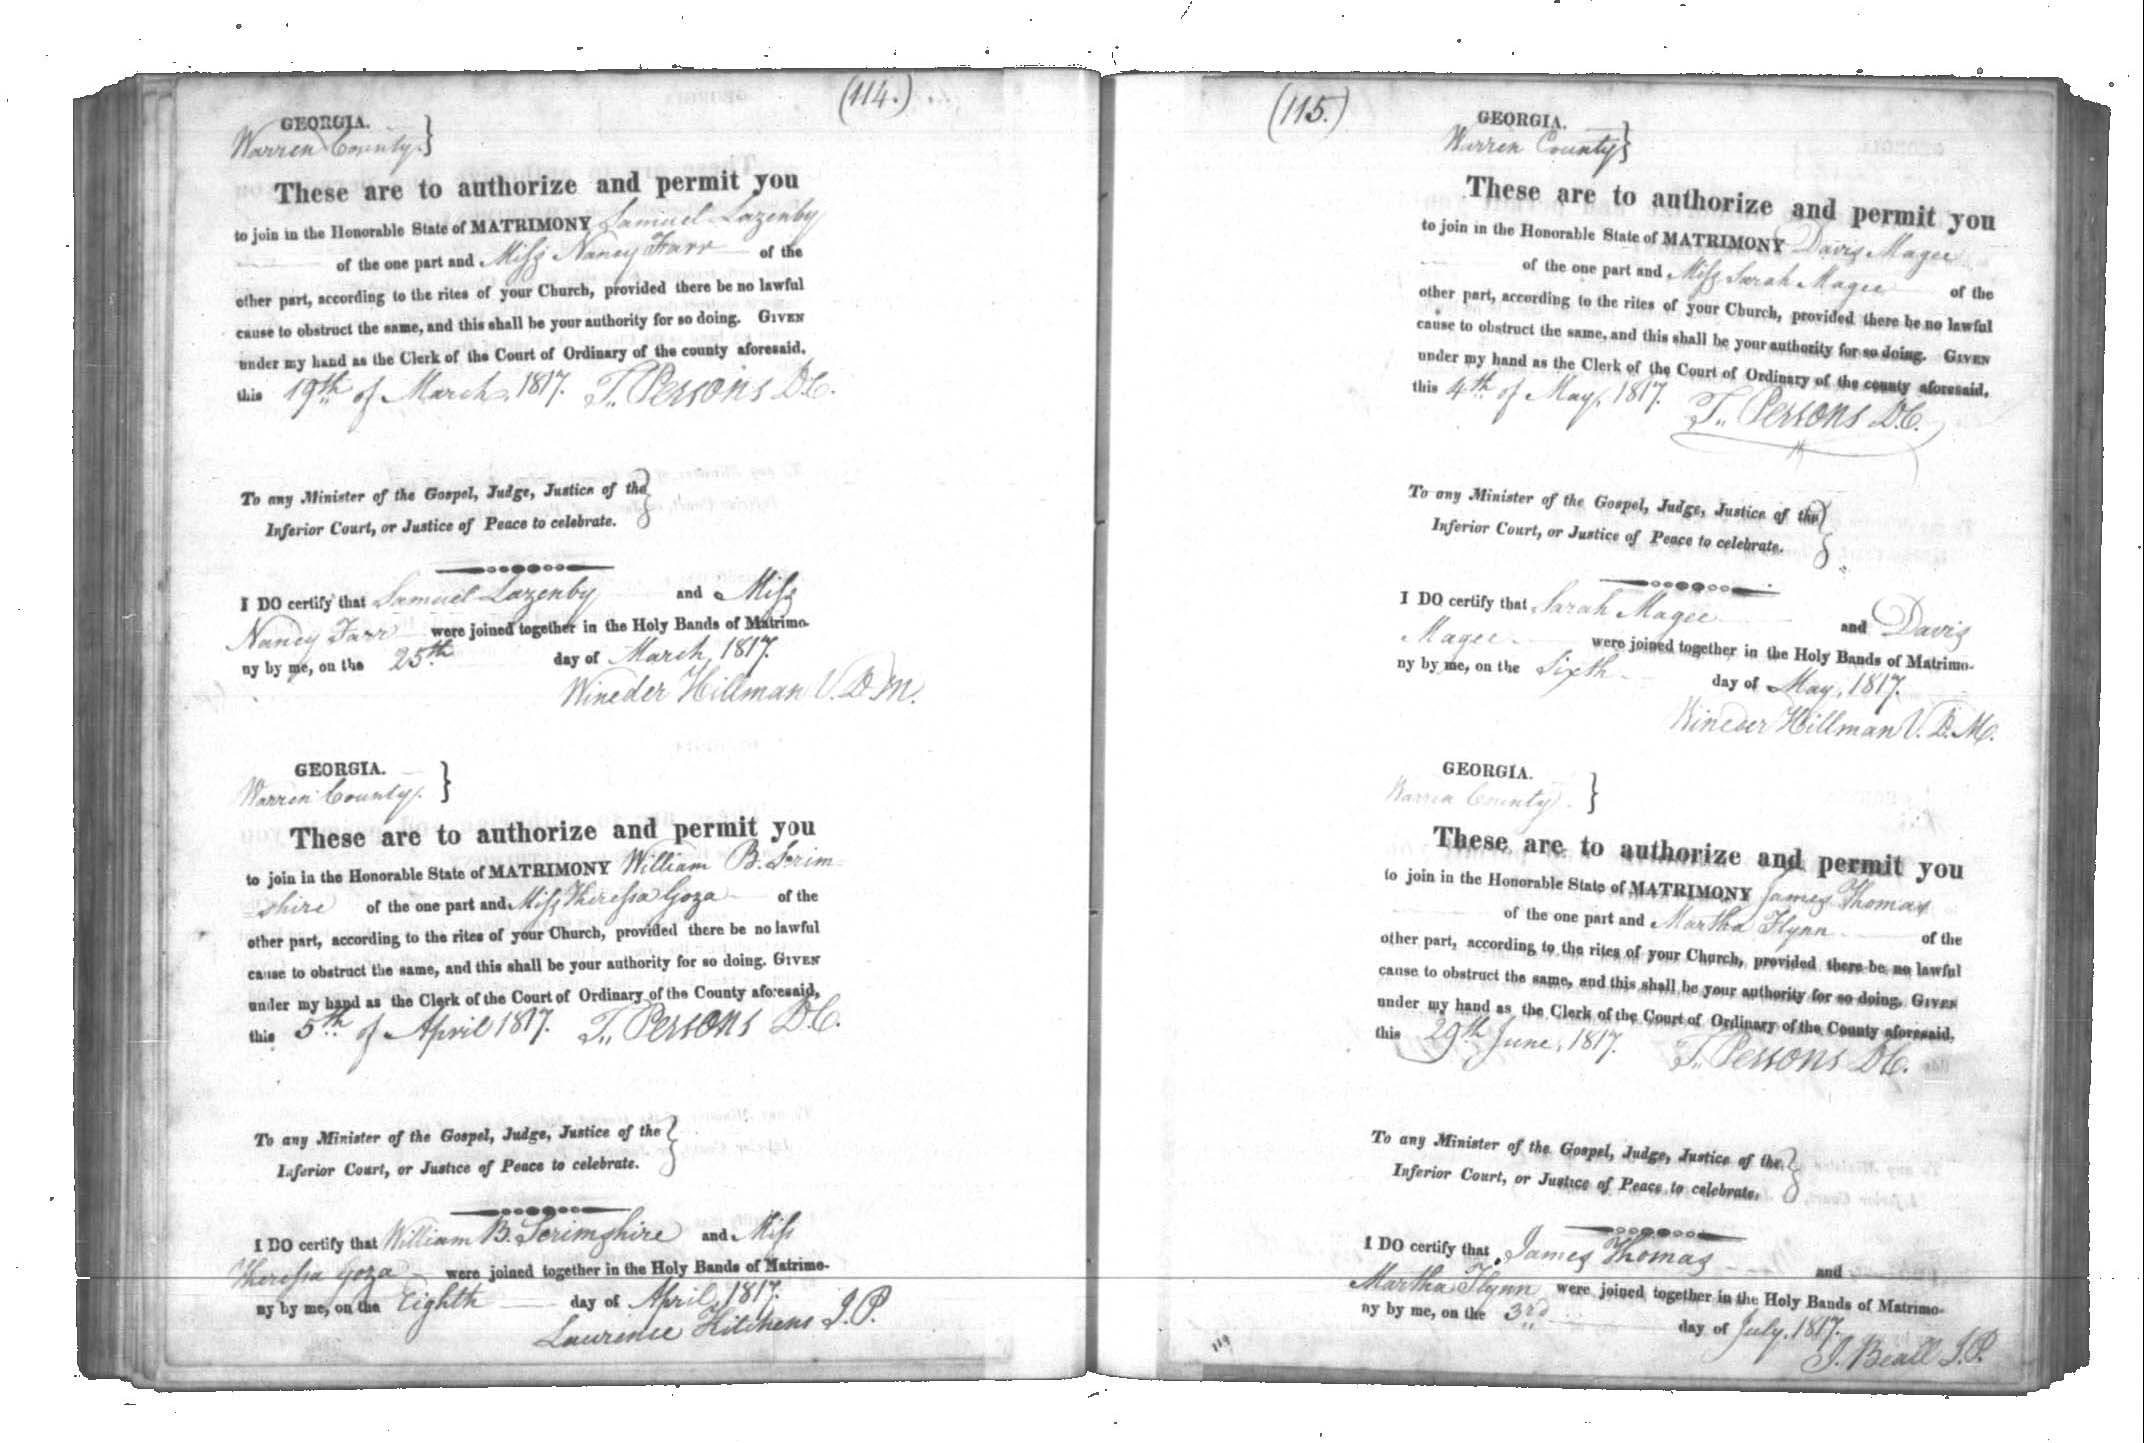 (114.)
GEORGIA.
Warren County. }
These are to authorize and permit you
to join in the Honorable State of MATRIMONY Samuel Lazenby
of the one part and Miss Nancy Farr of the
other part, according to the rites of your Church, provided there be no lawful
cause to obstruct the same, and this shall be your authority for so doing. GIVEN
under my hand as the Clerk of the Court of Ordinary of the county aforesaid,
this 19th of March, 1817. T. Persons D.C.
To any Minister of the Gospel, Judge, Justice of the }
Inferior Court, or Justice of Peace to celebrate.
I DO certify that Samuel Lazenby and Miss
Nancy Farr were joined together in the Holy Bands of Matrimo-
ny by me, on the 25th day of March, 1817.
Wineder Hillman V.D.M.
GEORGIA.
Warren County. }
These are to authorize and permit you
to join in the Honorable State of MATRIMONY William B. Scrim-
shire of the one part and Miss Theressa Goza of the
other part, according to the rites of your Church, provided there be no lawful
cause to obstruct the same, and this shall be your authority for so doing. GIVEN
under my hand as the Clerk of the Court of Ordinary of the County aforesaid,
this 5th of April 1817. T. Persons D.C.
To any Minister of the Gospel, Judge, Justice of the }
Inferior Court, or Justice of Peace to celebrate.
I DO certify that William B. Scrimshire and Miss
Theressa Goza were joined together in the Holy Bands of Matrimo-
ny by me, on the Eighth day of April, 1817.
Laurence Hitchens J.P.
(115.)
GEORGIA.
Warren County }
These are to authorize and permit you
to join in the Honorable State of MATRIMONY Davis Magee
of the one part and Miss Sarah Magee of the
other part, according to the rites of your Church, provided there be no lawful
cause to obstruct the same, and this shall be your authority for so doing. GIVEN
under my hand as the Clerk of the Court of Ordinary of the county aforesaid,
this 4th of May, 1817. T. Persons D.C.
To any Minister of the Gospel, Judge, Justice of the }
Inferior Court, or Justice of Peace to celebrate.
I DO certify that Sarah Magee and Davis
Magee were joined together in the Holy Bands of Matrimo-
ny by me, on the Sixth day of May, 1817.
Wineder Hillman V.D.M.
GEORGIA.
Warren County. }
These are to authorize and permit you
to join in the Honorable State of MATRIMONY James Thomas
of the one part and Martha Flynn of the
other part, according to the rites of your Church, provided there be no lawful
cause to obstruct the same, and this shall be your authority for so doing. GIVEN
under my hand as the Clerk of the Court of Ordinary of the County aforesaid,
this 29th June, 1817. T. Persons D.C.
To any Minister of the Gospel, Judge, Justice of the }
Inferior Court, or Justice of Peace to celebrate.
I DO certify that James Thomas and
Martha Flynn were joined together in the Holy Bands of Matrimo-
ny by me, on the 3rd day of July, 1817.
J. Beall J.P.